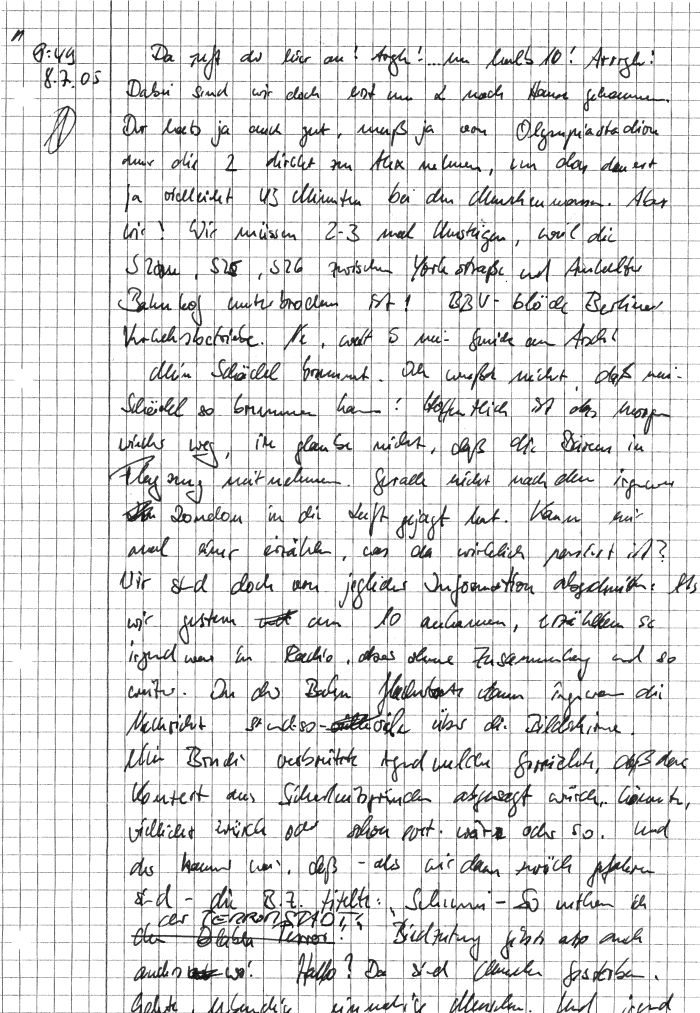 9:49
8.7.05
Da ruft der hier an! Argh! ... um halb 10! Arrrgh!
Dabei sind wir doch erst um 2 nach Hause gekommen.
Der hats ja auch gut, muß ja von Olympiastadion
nur die 2 direkt zum Alex nehmen, und das dauert
ja vielleicht 45 Minuten bei den Menschenmassen. Aber
wir! Wir müssen 2-3 mal Umsteigen, weil die
S2, S25, S26 zwischen Yorkstraße und Anhalter
Bahnhof unterbrochen ist! BBV - blöde Berliner
Verkehrsbetriebe. Ne,
Mein Schädel brummt. Ich wußte nicht, daß mein
Schädel so brummen kann! Hoffentlich ist das morgen
wieder weg, ich glaube nicht, daß die Sowas in
Flugzeug mitnehmen. Gerade nicht nach dem irgendwer
London in die Luft gejagt hat. Kann mir
mal einer erzählen, was da wirklich passiert ist?
Wir sind doch von jeglicher Information abgeschnitten. Als
wir gestern um 10 ankamen, erzählten sie
irgendwas im Radio, aber ohne Zusammenhang und so
weiter. In der Bahn flackerte dann irgendwann die
Nachricht soundso-viele über die Bildschirme.
Mein Bruder verbreitete irgendwelche Gerüchte, daß das
Konzert aus Sicherheitsgründen abgesagt würde, könnte,
vielleicht würde oder schon ist wäre oder so. Und
das kann wer, daß - als wir dann zurück gefahren
sind - die B.Z. titelte: So
der TERRORSTADT!"
Bildzeitung gibts also auch
anderswo! Hallo? Da sind Menschen gestorben.
Echte, lebendige, einmalige Menschen. Und irgend